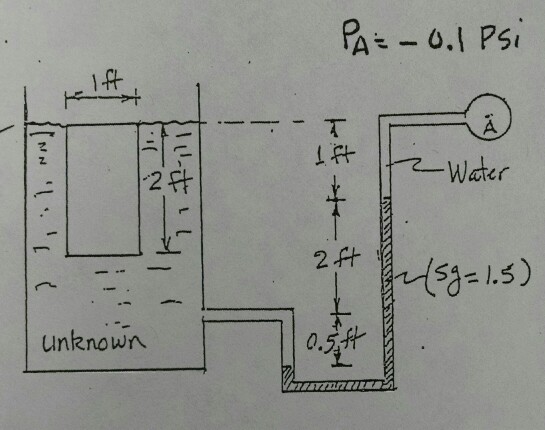 PA = - 0.1 PSi
1 ft
A
1 ft
2 ft
Water
2 ft
(sg = 1.5)
0.5 ft
unknown